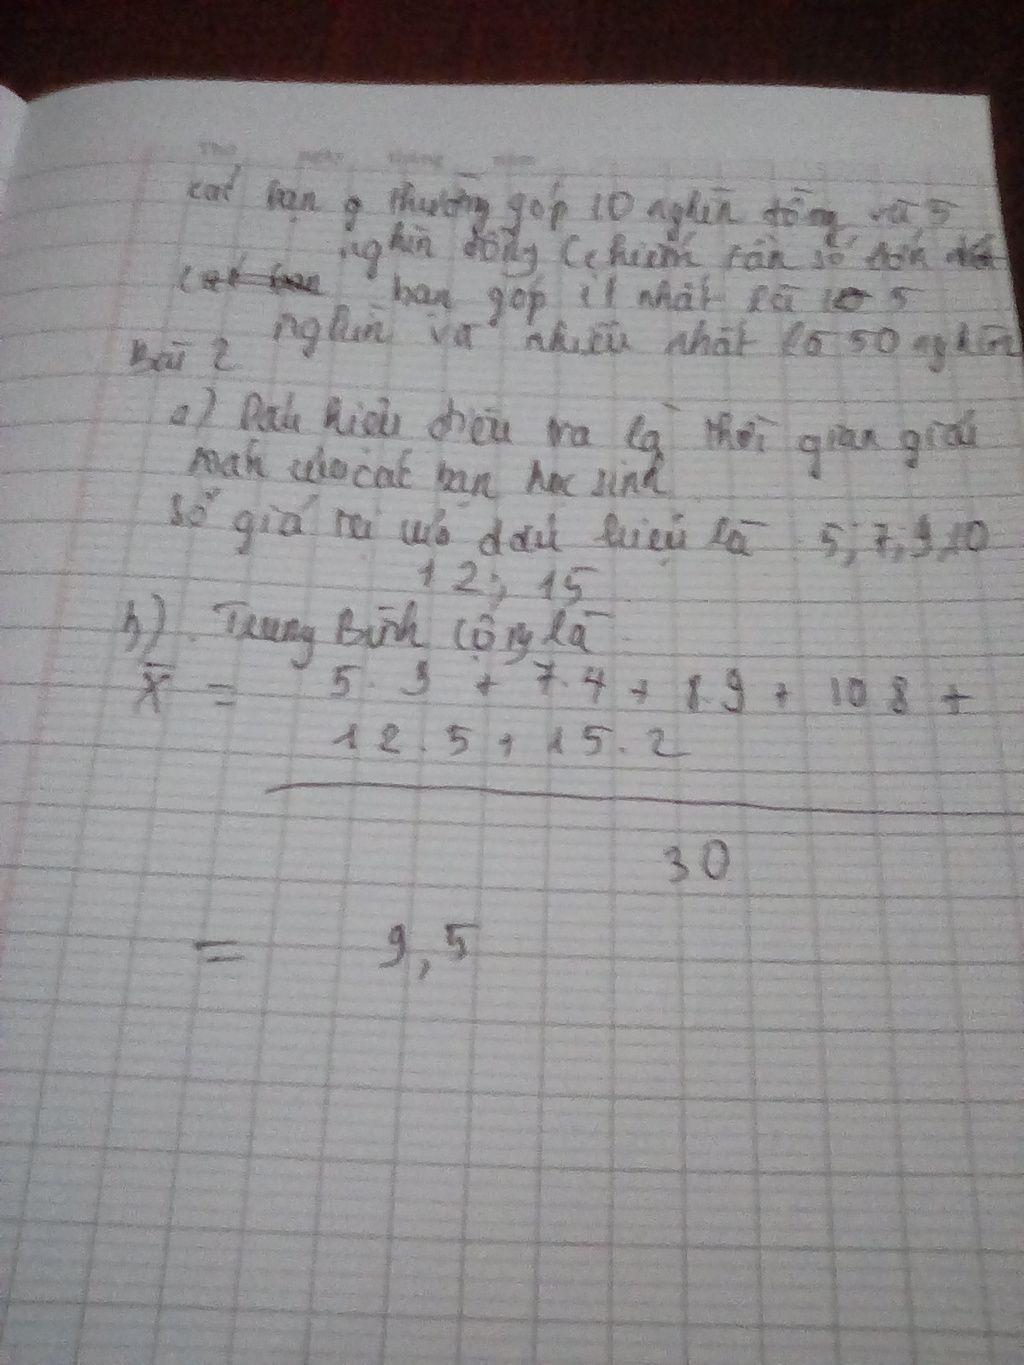 Thứ ngày tháng năm
các bạn thường góp 10 nghìn đồng và 5
nghìn đồng (chiếm tần số
bạn góp ít nhất là 5
nghìn và nhiều nhất là 50 nghìn
Bài 2
a) Dấu hiệu điều tra là thời gian giải
toán của các bạn học sinh
số giá trị của dấu hiệu là 5; 7; 9; 10
12; 15
b) Trung Bình Cộng là
X̄ = 5.3 + 7.4 + 8.9 + 10 8 +
12.5 + 15.2
30
= 9,5